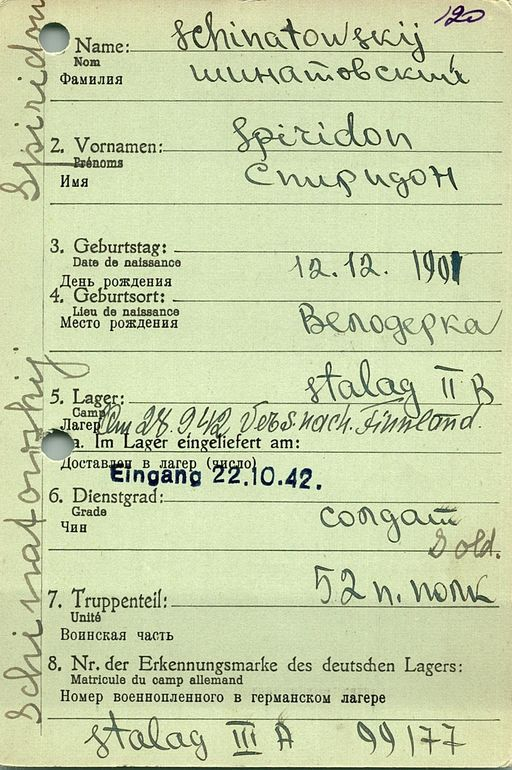 120
Name: Schinatowskij
Nom
Фамилия Шинатовский
2. Vornamen: Spiridon
Prénoms
Имя Спиридон
3. Geburtstag:
Date de naissance 12.12. 1901
День рождения
4. Geburtsort:
Lieu de naissance
Место рождения Велодерка
5. Lager: Stalag II B
Camp
Лагерь Am 28.9.42 Vers. nach. Finnland.
a. Im Lager eingeliefert am:
Доставлен в лагерь (число)
Eingang 22.10.42.
6. Dienstgrad:
Grade солдат
Чин
Sold.
52 п. полк
7. Truppenteil:
Unité
Воинская часть
8. Nr. der Erkennungsmarke des deutschen Lagers:
Matricule du camp allemand
Номер военнопленного в германском лагере
Stalag III A 99177
Schinatowskij Spiridon